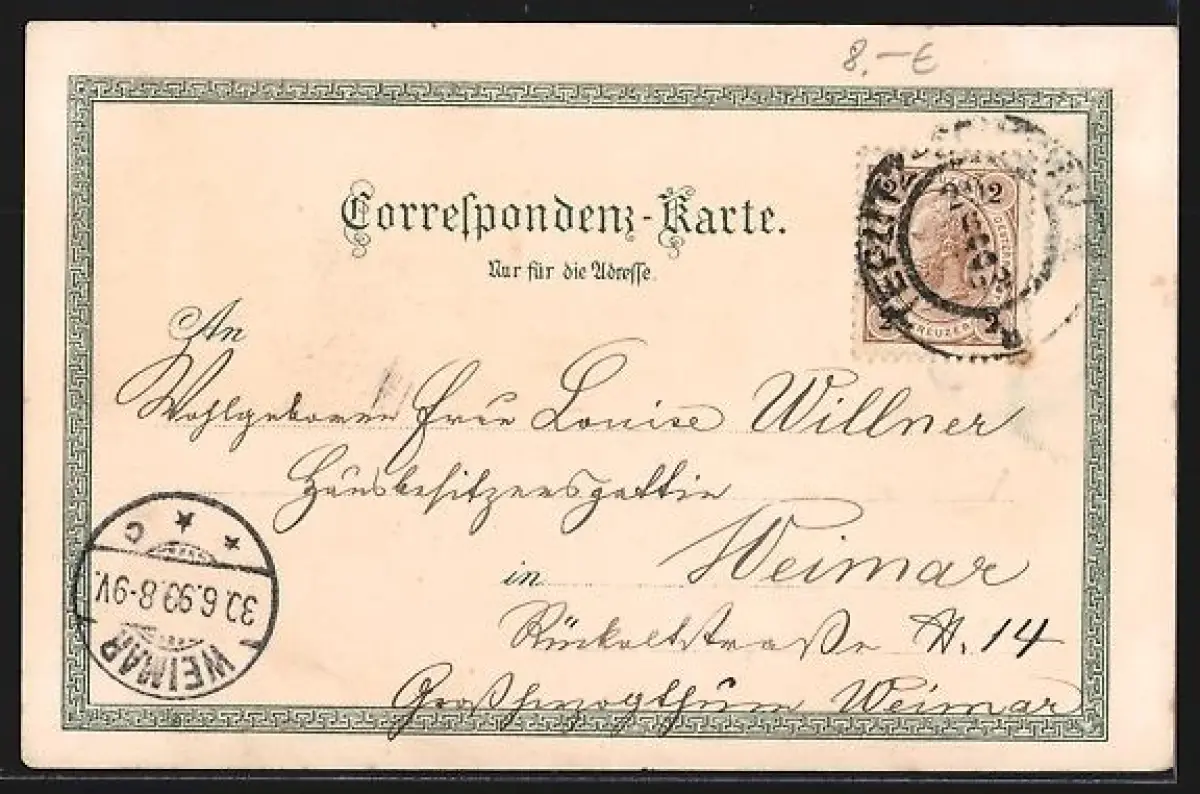 8.–€
Correspondenz-Karte.
Nur für die Adresse.
2 2
2 KREUZER 2
An
Wohlgeboren Frau Louise Willner
Hausbesitzersgattin
in Weimar
Rückertstraße N. 14
Großherzogthum Weimar
C
30.6.99.8-9V.
WEIMAR